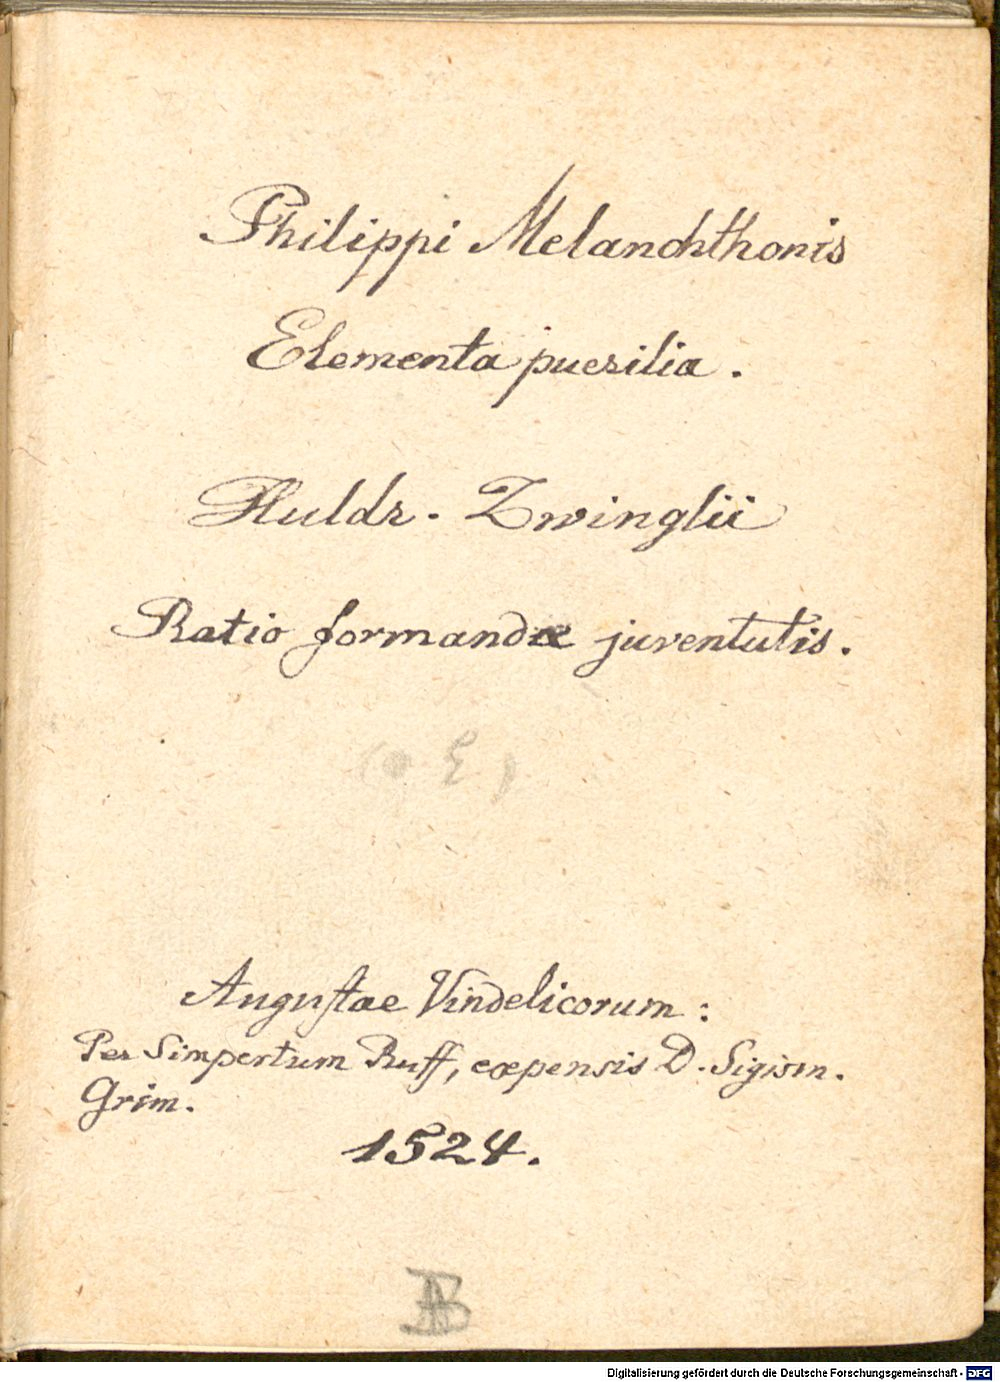 Philippi Melanchthonis
Elementa puerilia.
Huldr. Zwinglii
Ratio formandæ juventutis.
Augustae Vindelicorum:
Per Simpertum Ruff, expensis D. Sigism.
Grim.
1524.
Digitalisierung gefördert durch die Deutsche Forschungsgemeinschaft - DFG